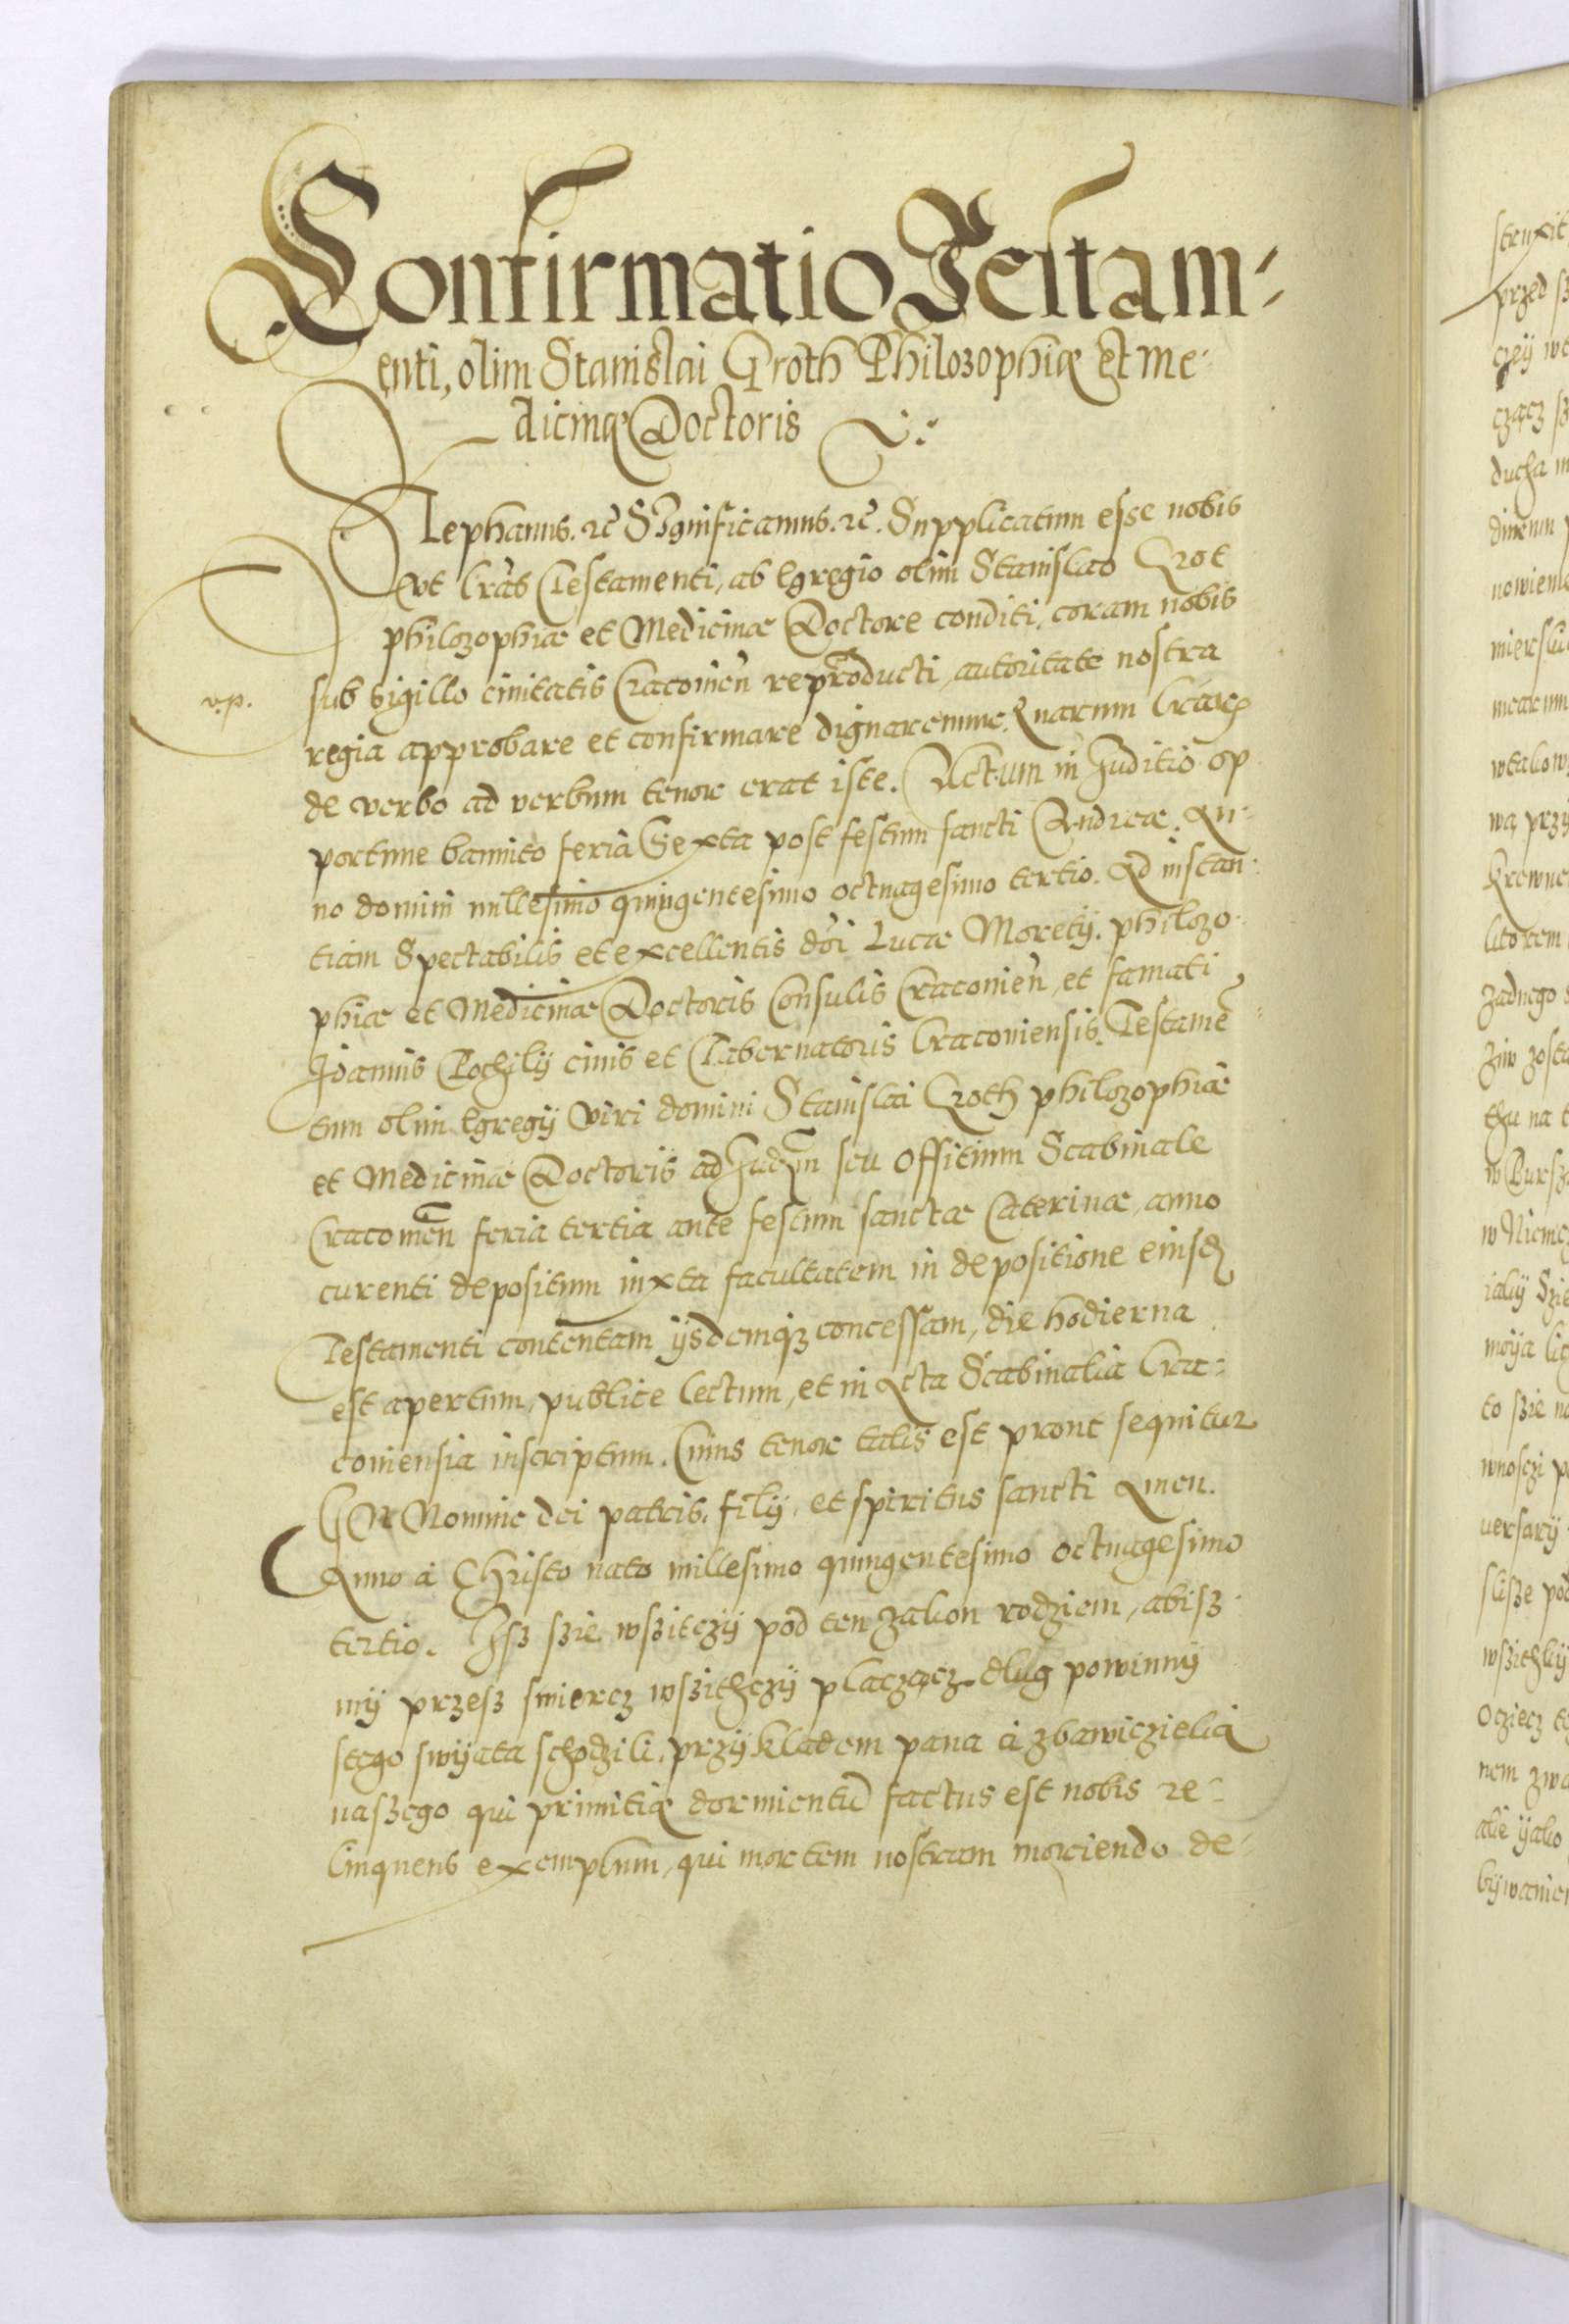 Confirmatio Testam-
enti, olim Stanislai Groth Philozophię et me-
dicinę Doctoris
Stephanus. etc̃ Significamus. etc̃. Supplicatum esse nobis
ut lr̃as Testamenti, ab Egregio olim Stanislao Grot
philozophiæ et Medicinæ Doctore conditi, coram nobis
v.p.
sub sigillo civitatis Cracovieñ reproducti, autoritate nostra
regia approbare et confirmare dignaremur. Quarum lr̃arꝝ
de verbo ad verbum tenor erat iste. Actum in Juditio op
portune bannito feria Sexta post festum sancti Andreæ. An-
no domini millesimo quingentesimo octuagesimo tertio. Ad instan-
tiam Spectabilis et excellentis dñi Lucæ Moretÿ. philozo-
phiæ et Medicinæ Doctoris Consulis Cracovieñ, et famati
Joannis Pochilÿ civis et Tabernatoris Cracoviensis. Testamẽ-
tum olim Egregÿ viri domini Stanislai Groth philozophiæ
et Medicinæ Doctoris ad Judm̃ seu Offitium Scabinale
Cracovień feria tertia ante festum sanctæ Caterinæ, anno
curenti depositum iuxta facultatem in depositione eiusd
Testamenti contentam ÿsdemqꝫ concessam, die hodierna
est apertum, publice lectum, et in Acta Scabinalia Cra-
coviensia inscriptum. Cuius tenor talis est prout sequitur
In Nomine dei patris, filÿ, et spiritus sancti Amen.
Anno a Christo nato millesimo quingentesimo octuagesimo
tertio. Jsz szie wszitczÿ pod ten zakon rodziem, abisz-
mÿ przesz smiercz wszithczÿ placzącz dlug powinnÿ
stego swÿata schodzili, przÿkladem pana a zbawiczielią
naszego qui primitię dormientũ factus est nobis re-
linquens exemplum, qui mortem nostram moriendo de-